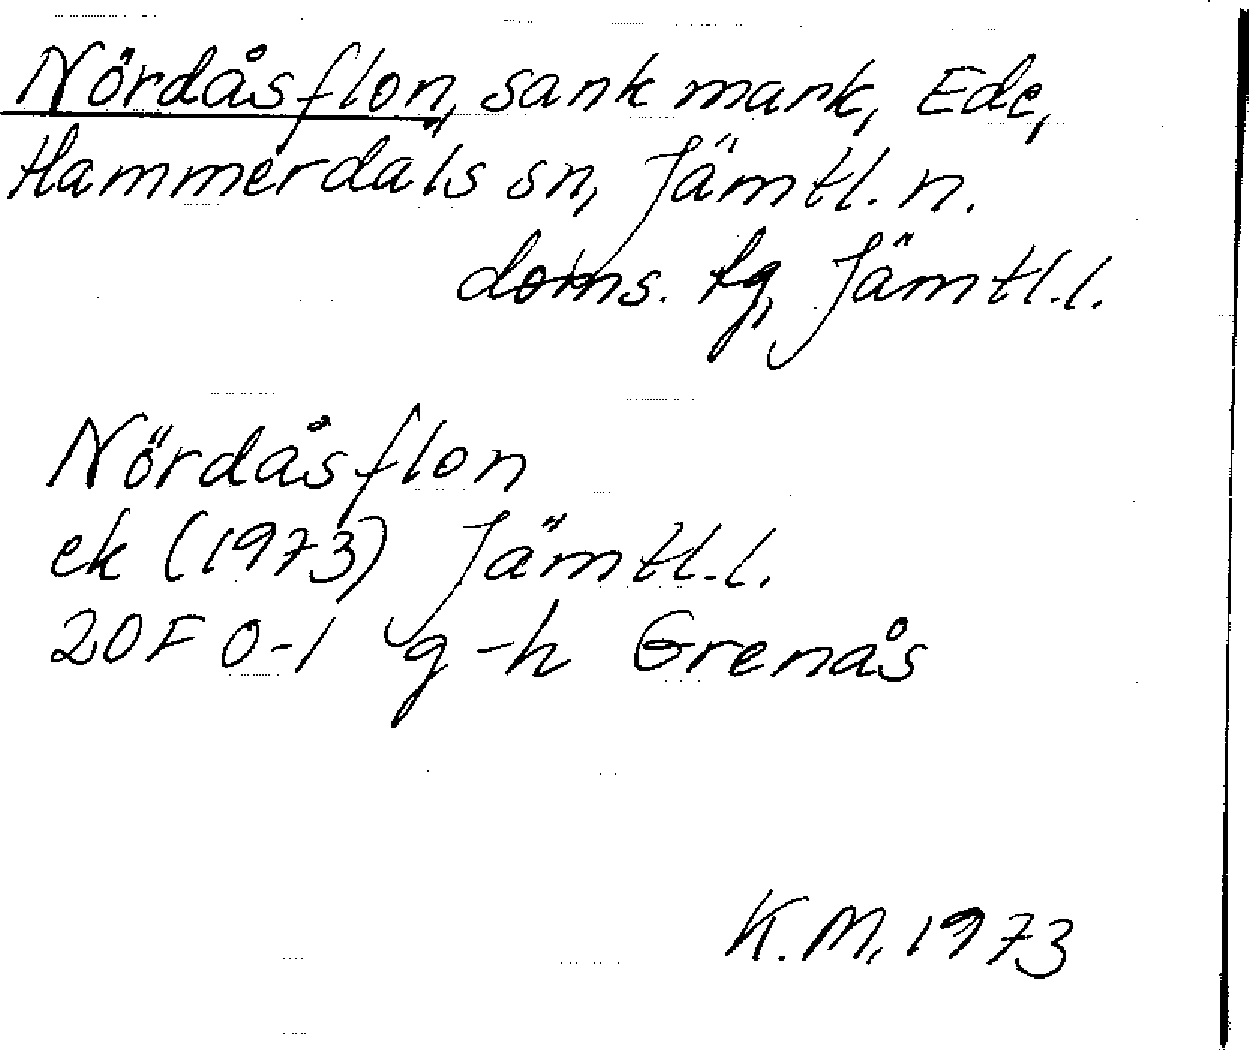 Nördåsflon, sank mark, Ede,
Hammerdals sn, Jämtl. n.
doms. tg, Jämtl. l.
Nördåsflon
ek (1973) Jämtl. l.
20F 0-1 g-h Grenås
K. M, 1973